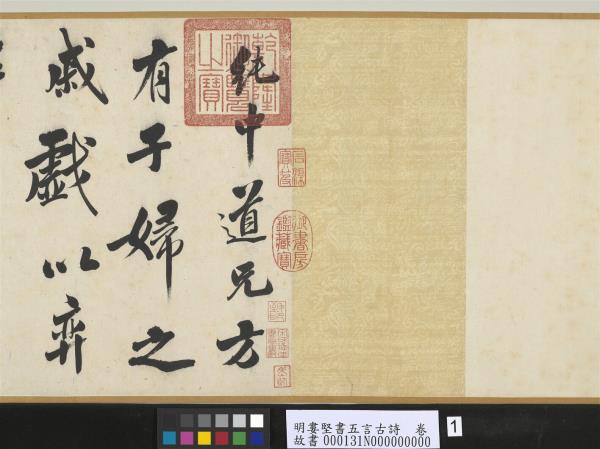 純中道兄方
有子婦之
戚戲以弈
乾隆御覽之寶
石渠寶笈
御書房鑑藏寶
明婁堅書五言古詩 卷
故書 000131N000000000
1